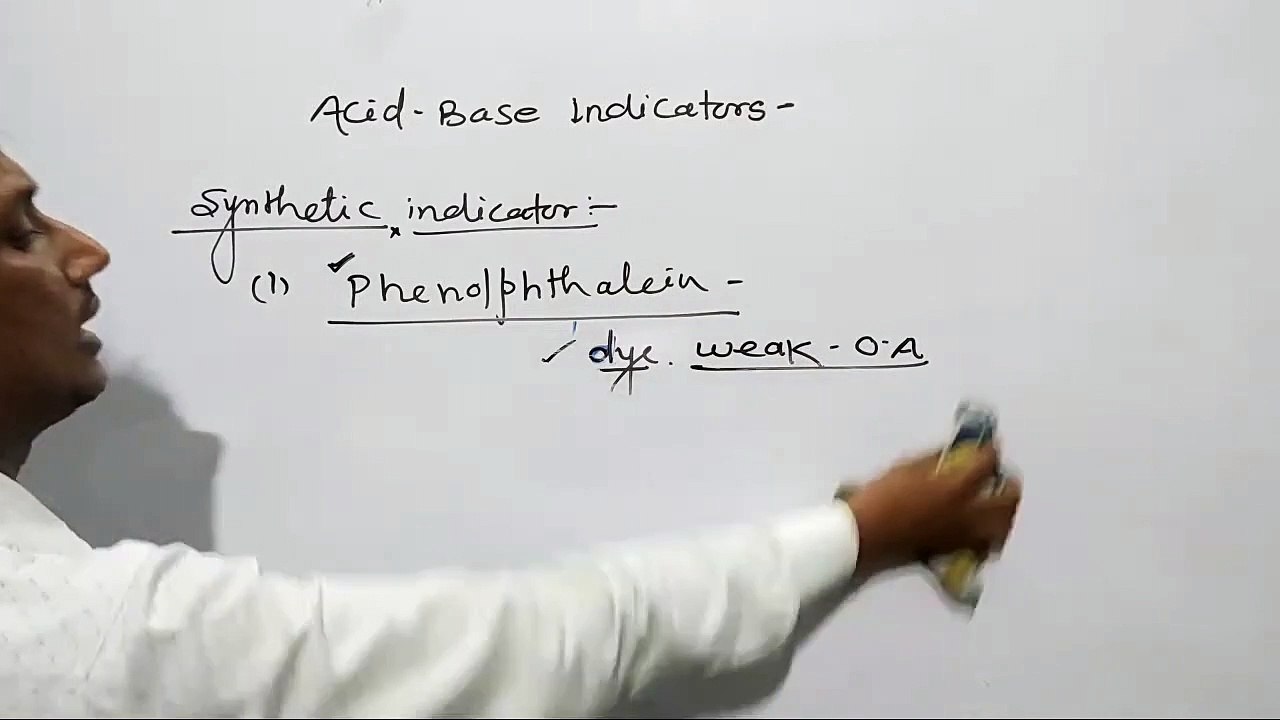 Acid-Base Indicators-
Synthetic indicator:-
(1) Phenolphthalein -
dye. weak-O.A